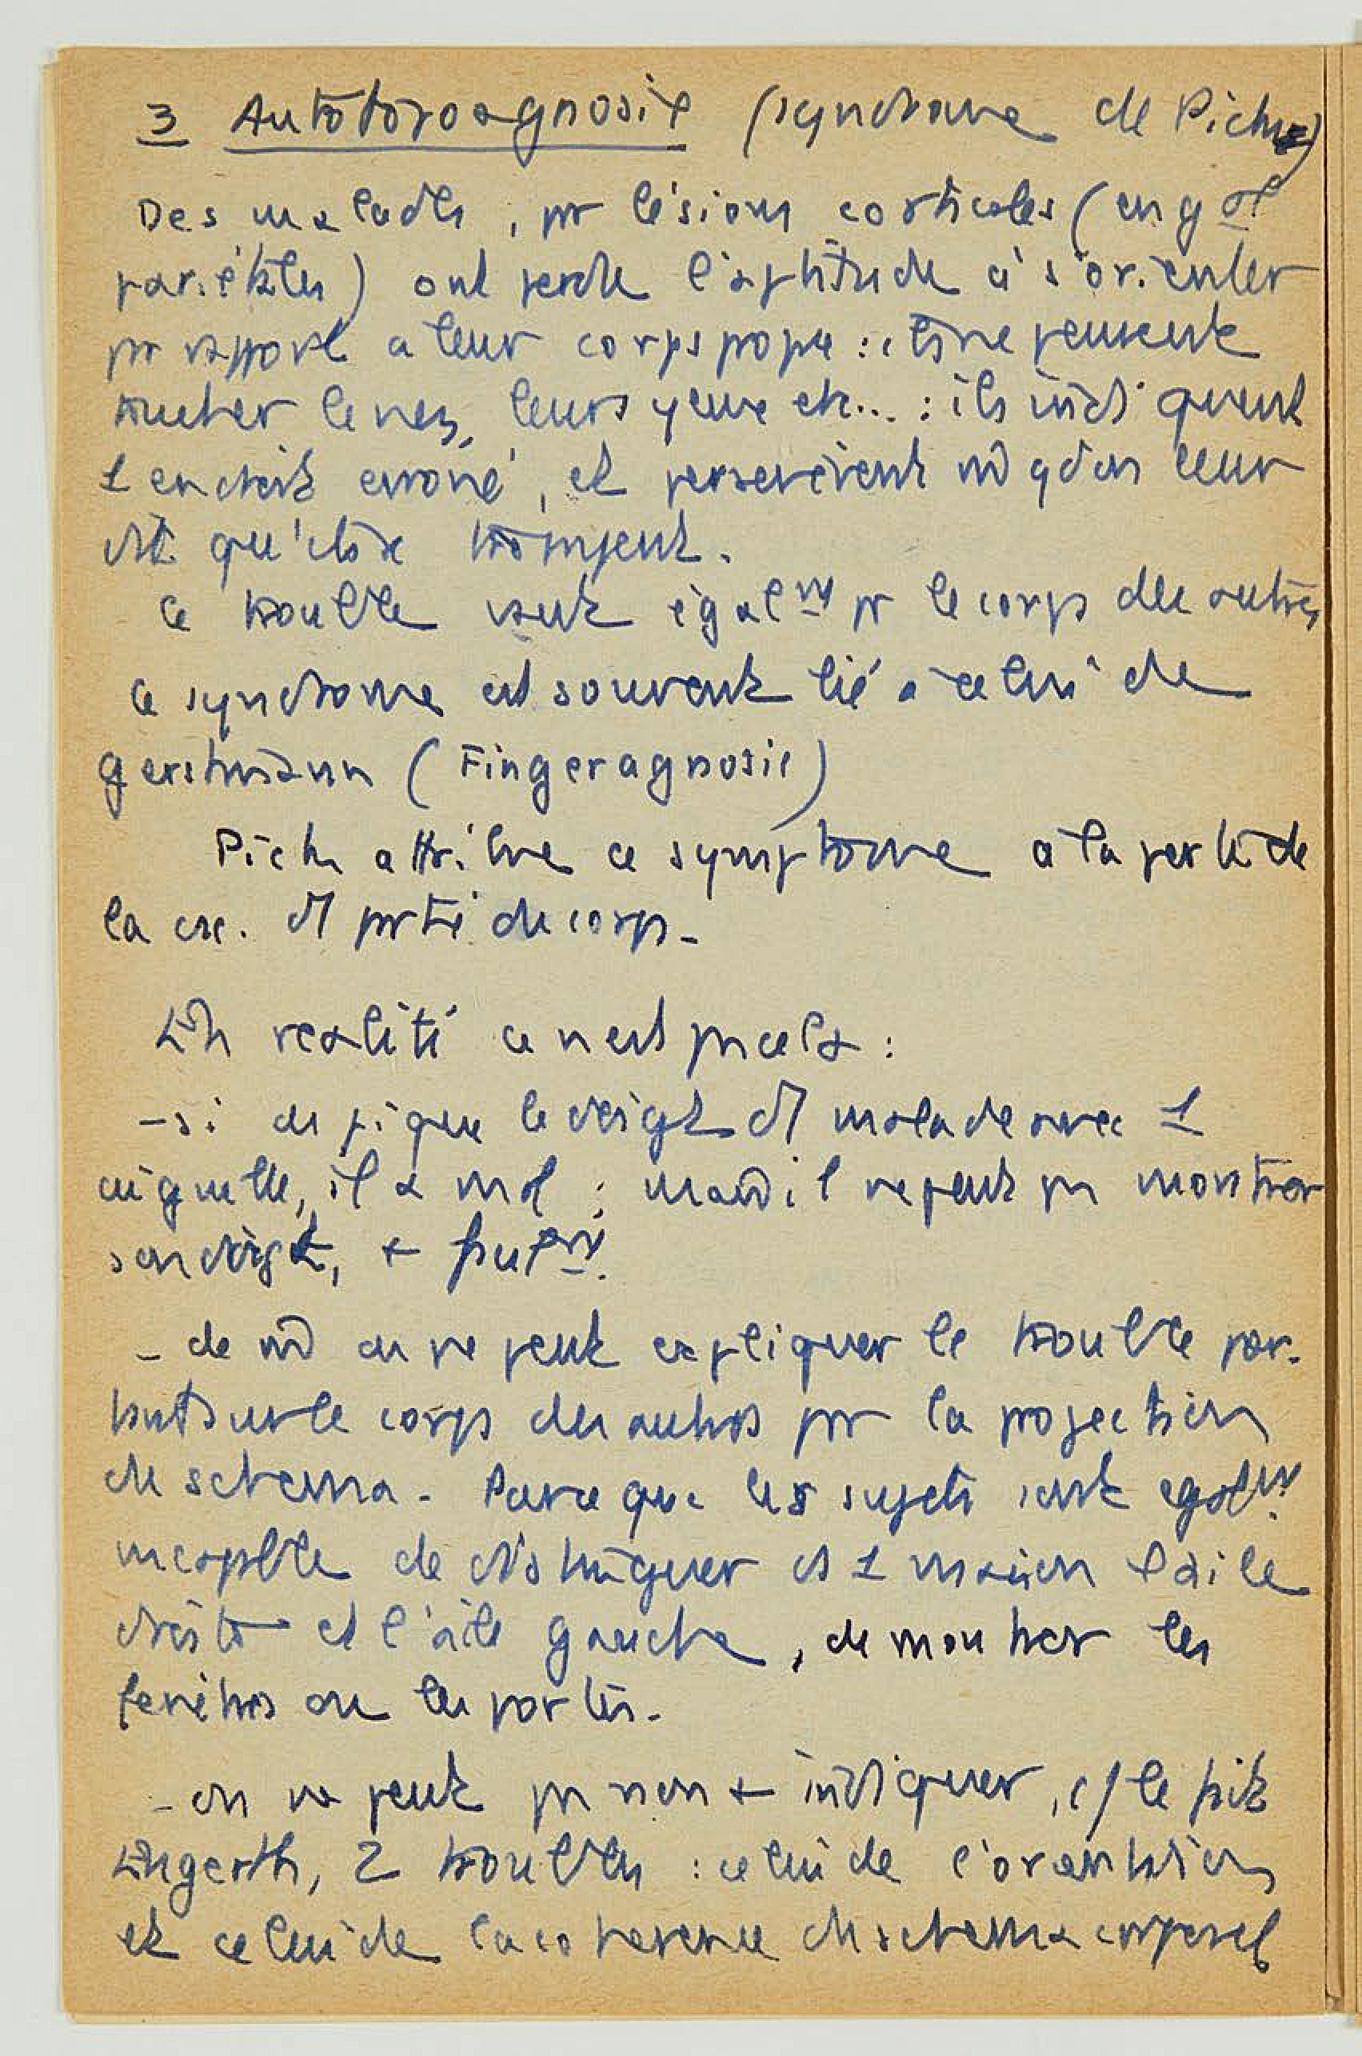 3 Autotopoagnosie (syndrome de Pick)
Des malades, pr lésions corticales (en gal
pariétales) ont perdu l'aptitude à s'orienter
pr rapport a leur corps propre : ils ne peuvent
toucher le nez, leurs yeux etc... : ils indiquent
1 endroit erroné, et persévèrent m̂ qd on leur
dit qu'ils se trompent.
Ce trouble vaut égalmt pr le corps des autres
Ce syndrome est souvent lié à celui de
Gerstmann (Fingeragnosie)
Pick attribue ce symptome à la perte de
la csc. d partie du corps.
En réalité ce n'est pas cela :
- si on pique le doigt d malade avec 1
aiguille, il a mal ; mais il ne peut pas montrer
son doigt, + seulmt.
- de m̂ on ne peut expliquer le trouble por-
tant sur le corps des autres par la projection
du schema. Parce que les sujets sont egalmt
incapables de distinguer ds 1 maison l'aile
droite et l'aile gauche, de montrer les
fenêtres ou les portes.
- on ne peut pas non + indiquer, c/ le fait
Engerth, 2 troubles : celui de l'orientation
et celui de la coherence du schema corporel